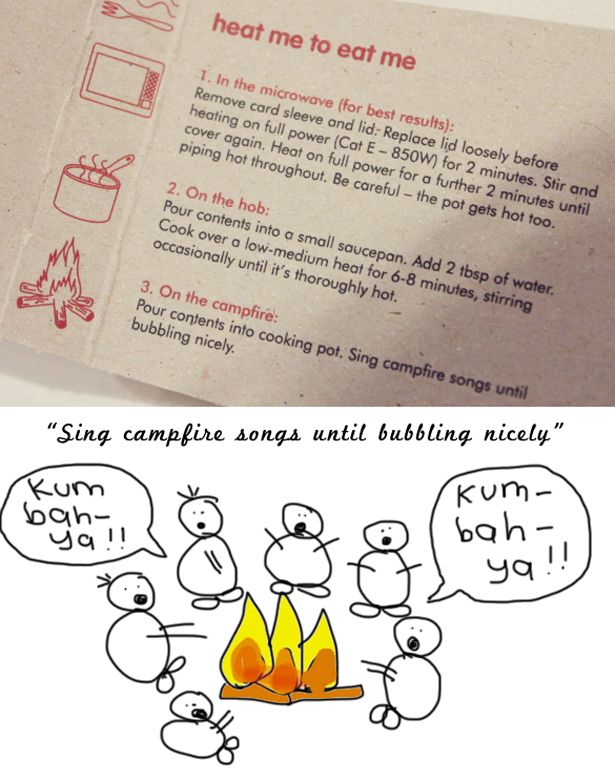 heat me to eat me
1. In the microwave (for best results):
Remove card sleeve and lid. Replace lid loosely before
heating on full power (Cat E – 850W) for 2 minutes. Stir and
cover again. Heat on full power for a further 2 minutes until
piping hot throughout. Be careful – the pot gets hot too.
2. On the hob:
Pour contents into a small saucepan. Add 2 tbsp of water.
Cook over a low-medium heat for 6-8 minutes, stirring
occasionally until it's thoroughly hot.
3. On the campfire:
Pour contents into cooking pot. Sing campfire songs until
bubbling nicely.
"Sing campfire songs until bubbling nicely"
Kum
bah-
ya!!
Kum-
bah-
ya!!